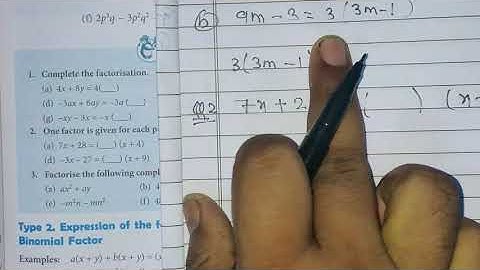 (f) 2p³q − 3p²q²
1. Complete the factorisation.
(a) 4x + 8y = 4(__)
(d) −3ax + 6ay = −3a (__)
(g) −xy − 3x = −x (__)
2. One factor is given for each p
(a) 7x + 28 = (__) (x + 4)
(d) −3x − 27 = (__) (x + 9)
3. Factorise the following compl
(a) ax² + ay (b) 4
(e) −m²n − mn² (f) 4
Type 2. Expression of the f
Binomial Factor
Examples: a(x + y) + b(x + y) = (x
(b) 9m - 3 = 3 (3m - 1)
3(3m - 1)
Q2 7x + 2 ( ) (x